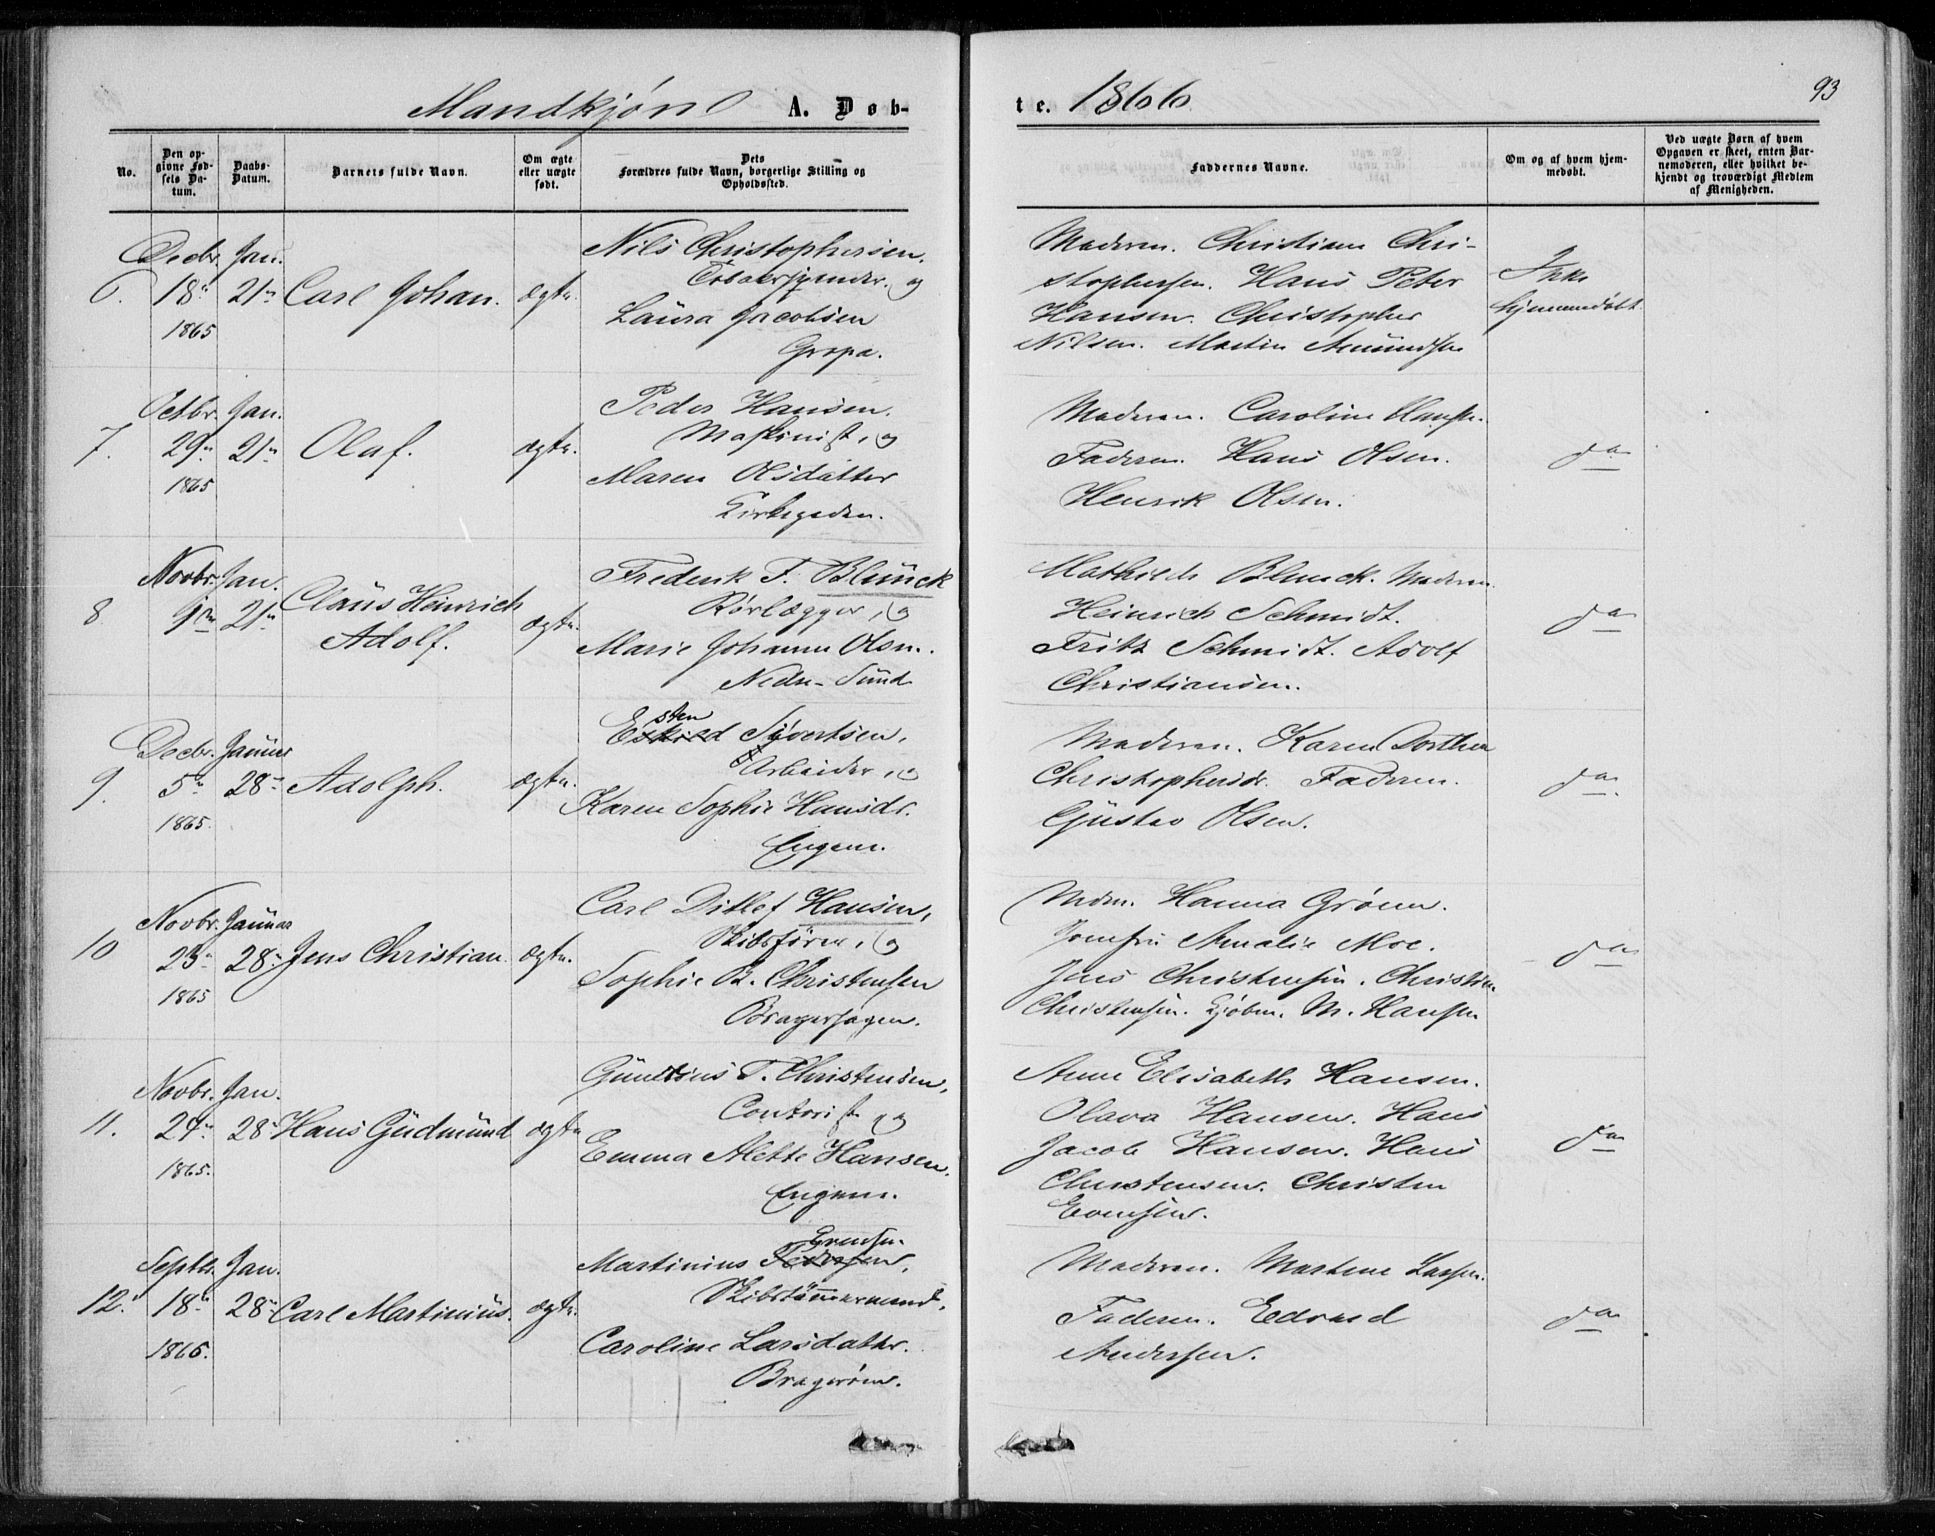 Mandkjøn A. Døb-
te. 1866
93
No.
Den op-
givne Fød-
sels Da-
tum.
Daabs-
Datum.
Barnets fulde Navn.
Om ægte
eller uægte
født.
Dets
Forældres fulde Navn, borgerlige Stilling og
Opholdssted.
Faddernes Navne.
Om og af hvem hjem-
medøbt.
Ved uægte Børn af hvem
Opgaven er skeet, enten Bar-
nemoderen, eller hvilket be-
kjendt og troværdigt Medlem
af Menigheden.
6.
Decbr. 18n 1865
Jan. 21n
Carl Johan.
ægte.
Nils Christophersen.
og
Laura Jacobsen
Gropa.
Moderen. Christiane Chri-
stophersen. Hans Peter
Hansen. Christopher
Nilsen. Martin Amundsen
Ikke
hjemmedøbt.
7.
Octbr. 29n 1865
Jan. 21n
Olaf.
ægte.
Peder Hansen.
Maskinist, og
Maren Olsdatter
Kirkegaden.
Moderen. Caroline Hansen.
Faderen. Hans Olsen.
Henrik Olsen.
do
8
Novbr.
Jan. 21n
Claus Heinrich
Adolf.
ægte.
Frederik F. Blunck
Rørlægger, og
Marie Johanne Olsen.
Nedre-Sund
Mathilde Blunck. Moderen.
Heinrich Schmidt.
Fritz Schmidt. Adolf
Christiansen.
do
9.
Decbr. 5n 1865.
Januar 28n
Adolph.
ægte.
sten
Eskild Syvertsen,
Arbeider, og
Karen Sophie Hansdr.
Engene.
Moderen. Karen Dorthea
Christophersdr. Faderen.
Gustav Olsen.
do
10
Novbr. 23n 1865
Januar 28n
Jens Christian.
ægte.
Carl Ditlef Hansen,
Skibsfører, og
Sophie B. Christensen
Bragernæs.
Mdm. Hanna Grønn.
Jomfru Amalie Moe.
Jens Christensen. Christian
Christensen. Kjøbm. M. Hansen
do
11.
Novbr. 27n 1865.
Jan. 28n
Hans Gudmund
ægte
T. Christensen,
Contorist og
Emma Alette Hansen.
Engene.
Anne Elisabeth Hansen.
Olava Hansen. Hans
Jacob Hansen. Hans
Christensen. Christen
Evensen.
do
12.
Septbr. 18n 1865.
Jan. 28n
Carl Martinius.
ægte.
Evensen.
Martinius Pedersen,
Skibstømmermand,
Caroline Larsdatter.
Bragernæs.
Moderen. Martine Larsen.
Faderen. Edvard
Andersen.
do